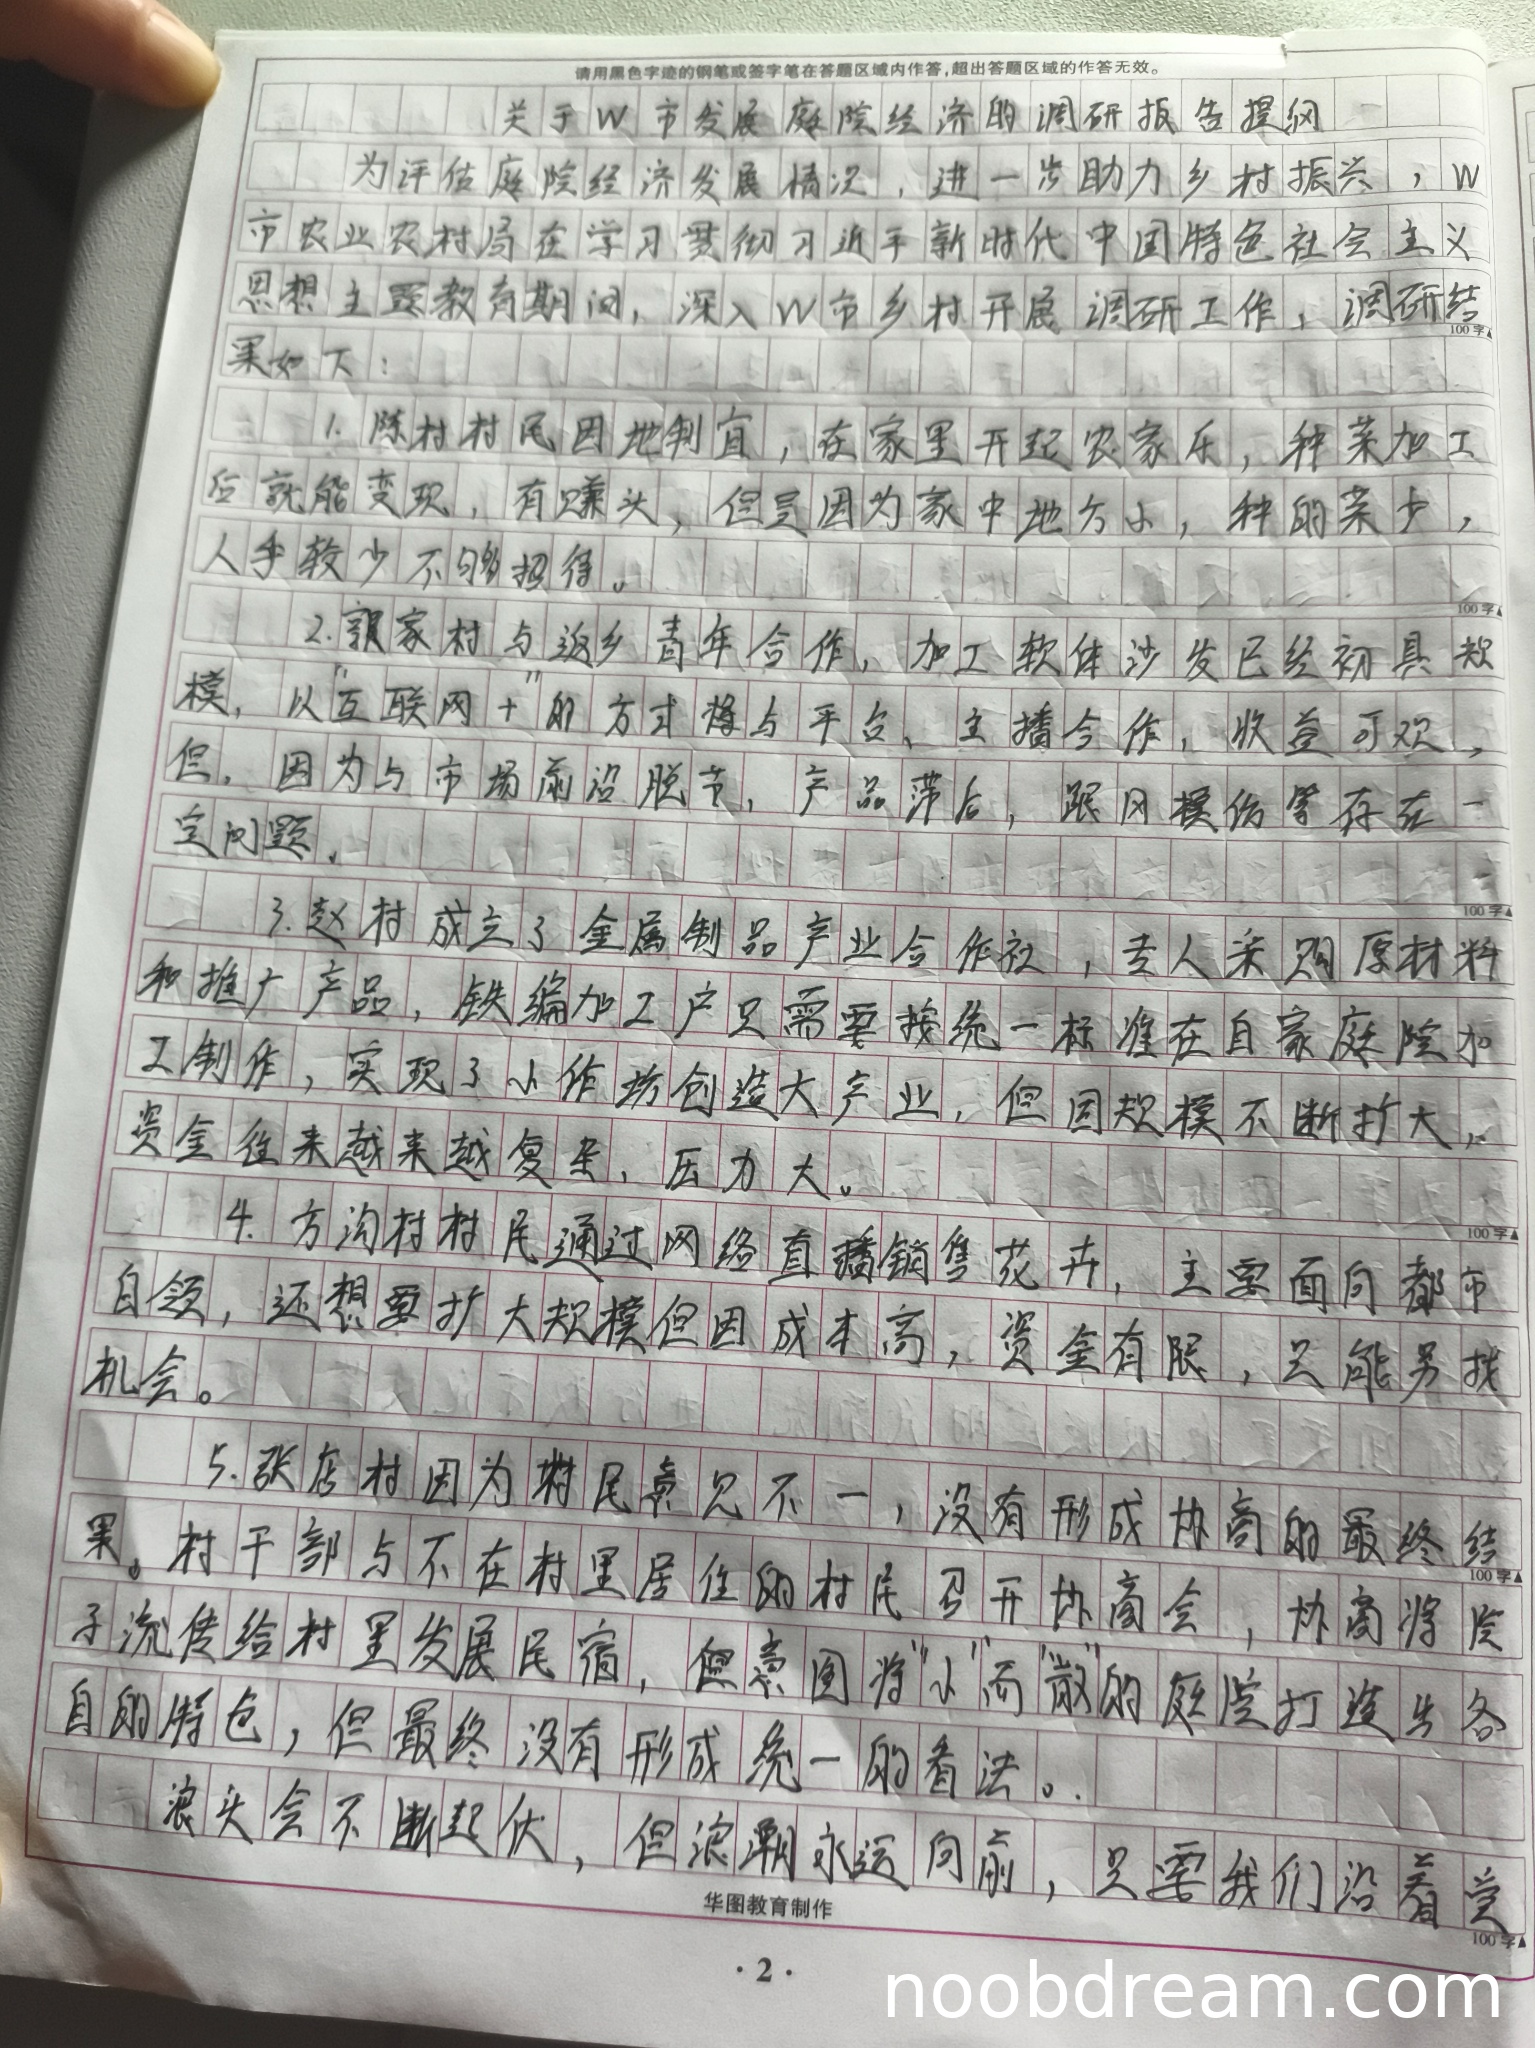 请用黑色字迹的钢笔或签字笔在答题区域内作答,超出答题区域的作答无效。
关于W市发展庭院经济的调研报告提纲
为评估庭院经济发展情况，进一步助力乡村振兴，W
市农业农村局在学习贯彻习近平新时代中国特色社会主义
思想主题教育期间，深入W市乡村开展调研工作，调研结
100字▲
果如下：
1.陈村村民因地制宜，在家里开起农家乐，种菜加工
后就能变现，有赚头，但是因为家中地方小，种的菜少，
人手较少不够招待。
100字▲
2.郭家村与返乡青年合作，加工软体沙发已经初具规
模，以"互联网+"的方式将与平台、主播合作，收益可观，
但，因为与市场前沿脱节，产品滞后，跟风模仿等存在一
定问题。
100字▲
3.赵村成立了金属制品产业合作社，专人采购原材料
和推广产品，铁编加工户只需要按统一标准在自家庭院加
工制作，实现了小作坊创造大产业，但因规模不断扩大，
资金往来越来越复杂，压力大。
100字▲
4.方沟村村民通过网络直播销售花卉，主要面向都市
白领，还想要扩大规模但因成本高，资金有限，只能另找
机会。
5.张店村因为村民意见不一，没有形成协商的最终结
100字▲
果。村干部与不在村里居住的村民召开协商会，协商将院
子流传给村里发展民宿，但意图将"小"而"散"的庭院打造出各
自的特色，但最终没有形成统一的看法。
浪头会不断起伏，但浪潮永远向前，只要我们沿着党
100字▲
华图教育制作
·2·
noobdream.com